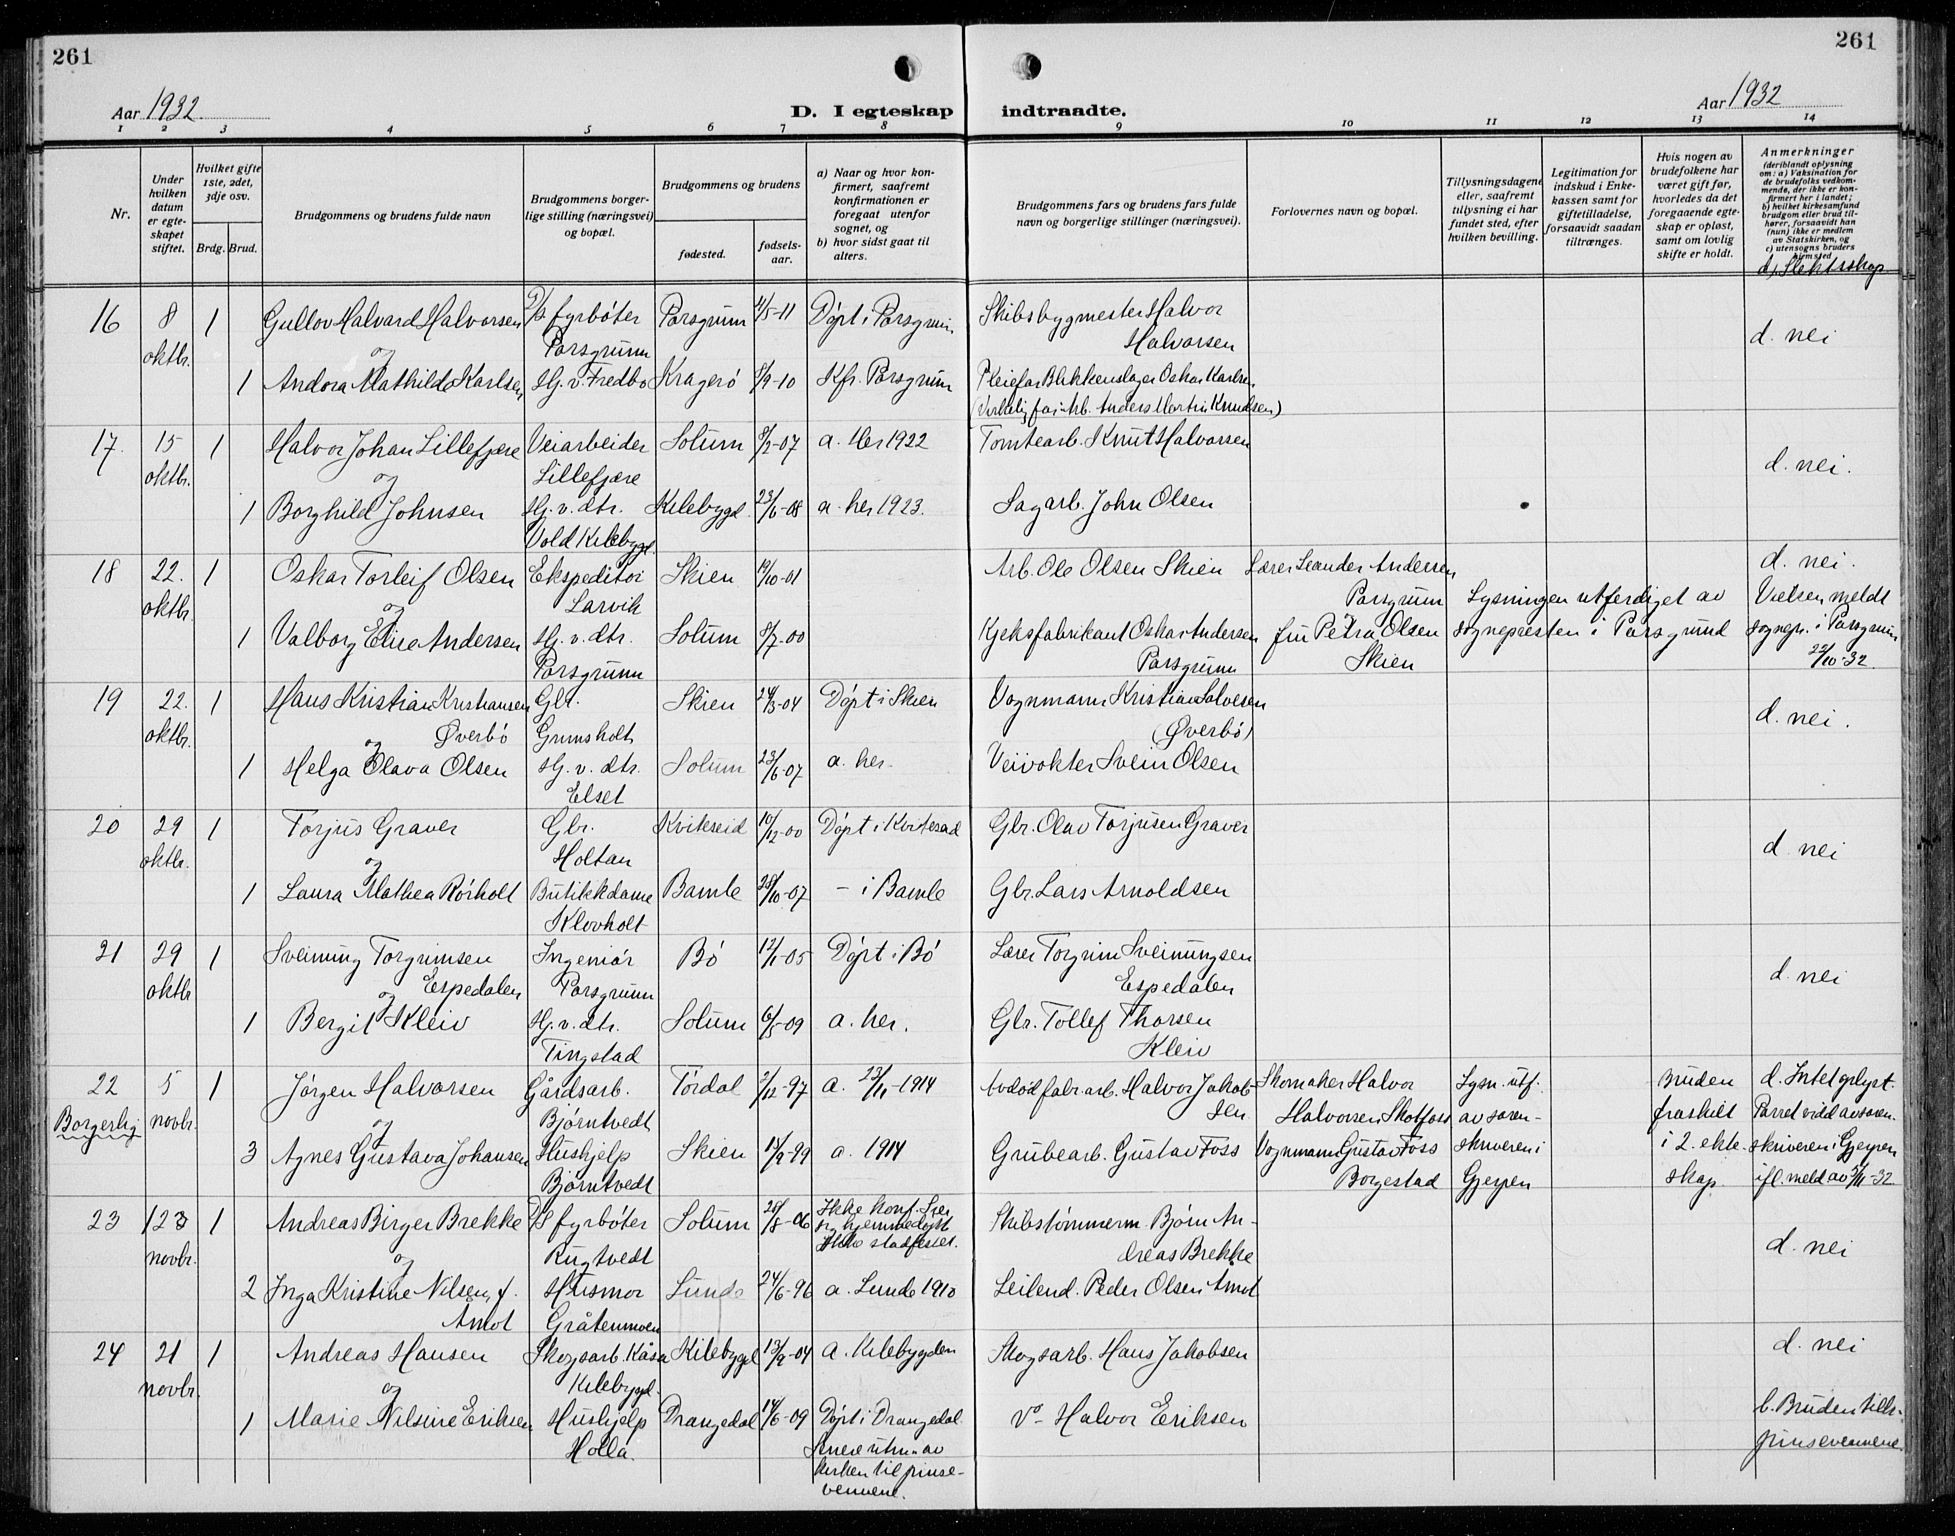 261
261
Aar 1932.
D. I egteskap indtraadte.
Aar 1932
1 2 3 4 5 6 7 8 9 10 11 12 13 14
Nr.
Under hvilken datum er egteskapet stiftet.
Hvilket gifte 1ste, 2det, 3dje osv.
Brdg. Brud.
Brudgommens og brudens fulde navn
Brudgommens borgerlige stilling (næringsvei) og bopæl.
Brudgommens og brudens
fødested.
fødselsaar.
a) Naar og hvor konfirmert, saafremt konfirmationen er foregaat utenfor sognet, og
b) hvor sidst gaat til alters.
Brudgommens fars og brudens fars fulde navn og borgerlige stillinger (næringsvei).
Forlovernes navn og bopæl.
Tillysningsdagene eller, saafremt tillysning ei har fundet sted, efter hvilken bevilling.
Legitimation for indskud i Enkekassen samt for giftetilladelse, forsaavidt saadan tiltrænges.
Hvis nogen av brudefolkene har været gift før, hvorledes da det foregaaende egteskap er opløst, samt om lovlig skifte er holdt.
Anmerkninger
(deriblandt oplysning om: a) Vaksination for de brudefolks vedkommende, der ikke er konfirmert her i landet; b) hvilket kirkesamfund brudgom eller brud tilhører, forsaavidt han (hun) ikke er medlem av Statskirken, og c) utensogns bruders hjemsted
d) Slektskap.
16 8 oktbr. 1 Gullov Halvard Halvorsen D/S fyrbøter Porsgrunn Porsgrunn 4/5-11 Døpt i Porsgrunn Skibsbygmester Halvor Halvorsen d. nei
og
1 Andora Mathilde Karlsen Hj. v. Fredbo Kragerö 8/9-10 Kfr. Porsgrunn Pleiefar Blikkenslager Oskar Karlsen
(Virkelig far: Arb. Anders Martin Knudsen)
17. 15 oktbr. 1 Halvor Johan Lillefjære Veiarbeider Lillefjære Solum 8/2-07 a. Her 1922 Tomtearb. Knut Halvorsen d. nei.
og
1 Borghild Johnsen Hj. v. dtr. Vold Kilebygd Kilebygd. 23/6-08 a. her 1923. Sagarb. John Olsen
18 22. oktbr. 1 Oskar Torleif Olsen Ekspeditør Larvik Skien 19/10-01 Arb. Ole Olsen Skien Lærer Leander Andersen Porsgrunn Lysningen utferdiget av d. nei.
og
1 Valborg Elise Andersen Hj. v. dtr. Porsgrunn Solum 8/7-00 Kjeksfabrikant Oskar Andersen Porsgrunn fru Petra Olsen Skien sognepresten i Porsgrund Vielsen meldt sognepr. i Porsgrunn 22/10-32.
19 22. oktbr. 1 Hans Kristian Kristiansen Øverbö Gbr. Grinsholt Skien 24/3-04 Döpt i Skien Vognmann Kristian Salvesen (Øverbö) d. nei.
og
1 Helga Olava Olsen Hj. v. dtr. Elset Solum 23/6-07 a. her. Veivokter Svein Olsen
20 29 oktbr. 1 Torjus Graver Gbr. Holtan Kvikseid 10/12-00 Döpt i Kviteseid Gbr. Olav Torjusen Graver d. nei
og
1 Laura Mathea Rörholt Butikkdame Klovholt Bamle 28/10-07 – i Bamle Gbr. Lars Arnoldsen
21 29 oktbr 1 Sveinung Torgrimsen Espedalen Ingeniör Porsgrunn Bö 12/1-05 Döpt i Bö Lærer Torgrim Sveinungsen Espedalen d. nei
og
1 Bergit Kleiv Hj. v. dtr. Tingstad Solum 6/5-09 a. her. Gbr. Tollef Thorsen Kleiv
22 Borgerlig 5 novbr. 1 Jörgen Halvorsen Gårdsarb. Bjørntvedt Tördal 2/12-97 a. 23/11-1914 Avdöd fabr. arb. Halvor Jakobsen Skomaker Halvor Halvorsen Skotfoss Lysn. utf. av soren- Bruden fraskilt d. Intet oplyst. Parret viet av soren-
og
3 Agnes Gustava Johansen Hushjelp Bjørntvedt Skien 14/9-99 a. 1914 Grubearb. Gustav Foss Vognmann Gustav Foss Borgestad skriveren i Gjerpen i 2. ekteskap. skriveren i Gjerpen ifl. meld. av 5/11-32
23 12 novbr. 1 Andreas Birger Brekke D/S fyrbøter Rugtvedt Solum 28/8-06 Ikke konf. Sier sig hjemmedøpt Ikke stadfestet. Skibstømmerm. Bjørn Andreas Brekke d. nei
og
2 Inga Kristine Nilsen, f. Amot Husmor Gråtenmoen Lunde 24/6-96 a. Lunde 1910 Leilend. Peder Olsen Amot
24 21 novbr. 1 Andreas Hansen Skogsarb. Kåsa Kilebygd. Kilebygd 13/9-04 a. Kilebygden Skogsarb. Hans Jakobsen d. nei
og
1 Marie Nilsine Eriksen Hushjelp Holla. Drangedal 14/6-09 Döpt i Drangedal Senere utm. av kirken til pinsevennene. Do – Halvor Eriksen b. Bruden tilh. pinsevennene.